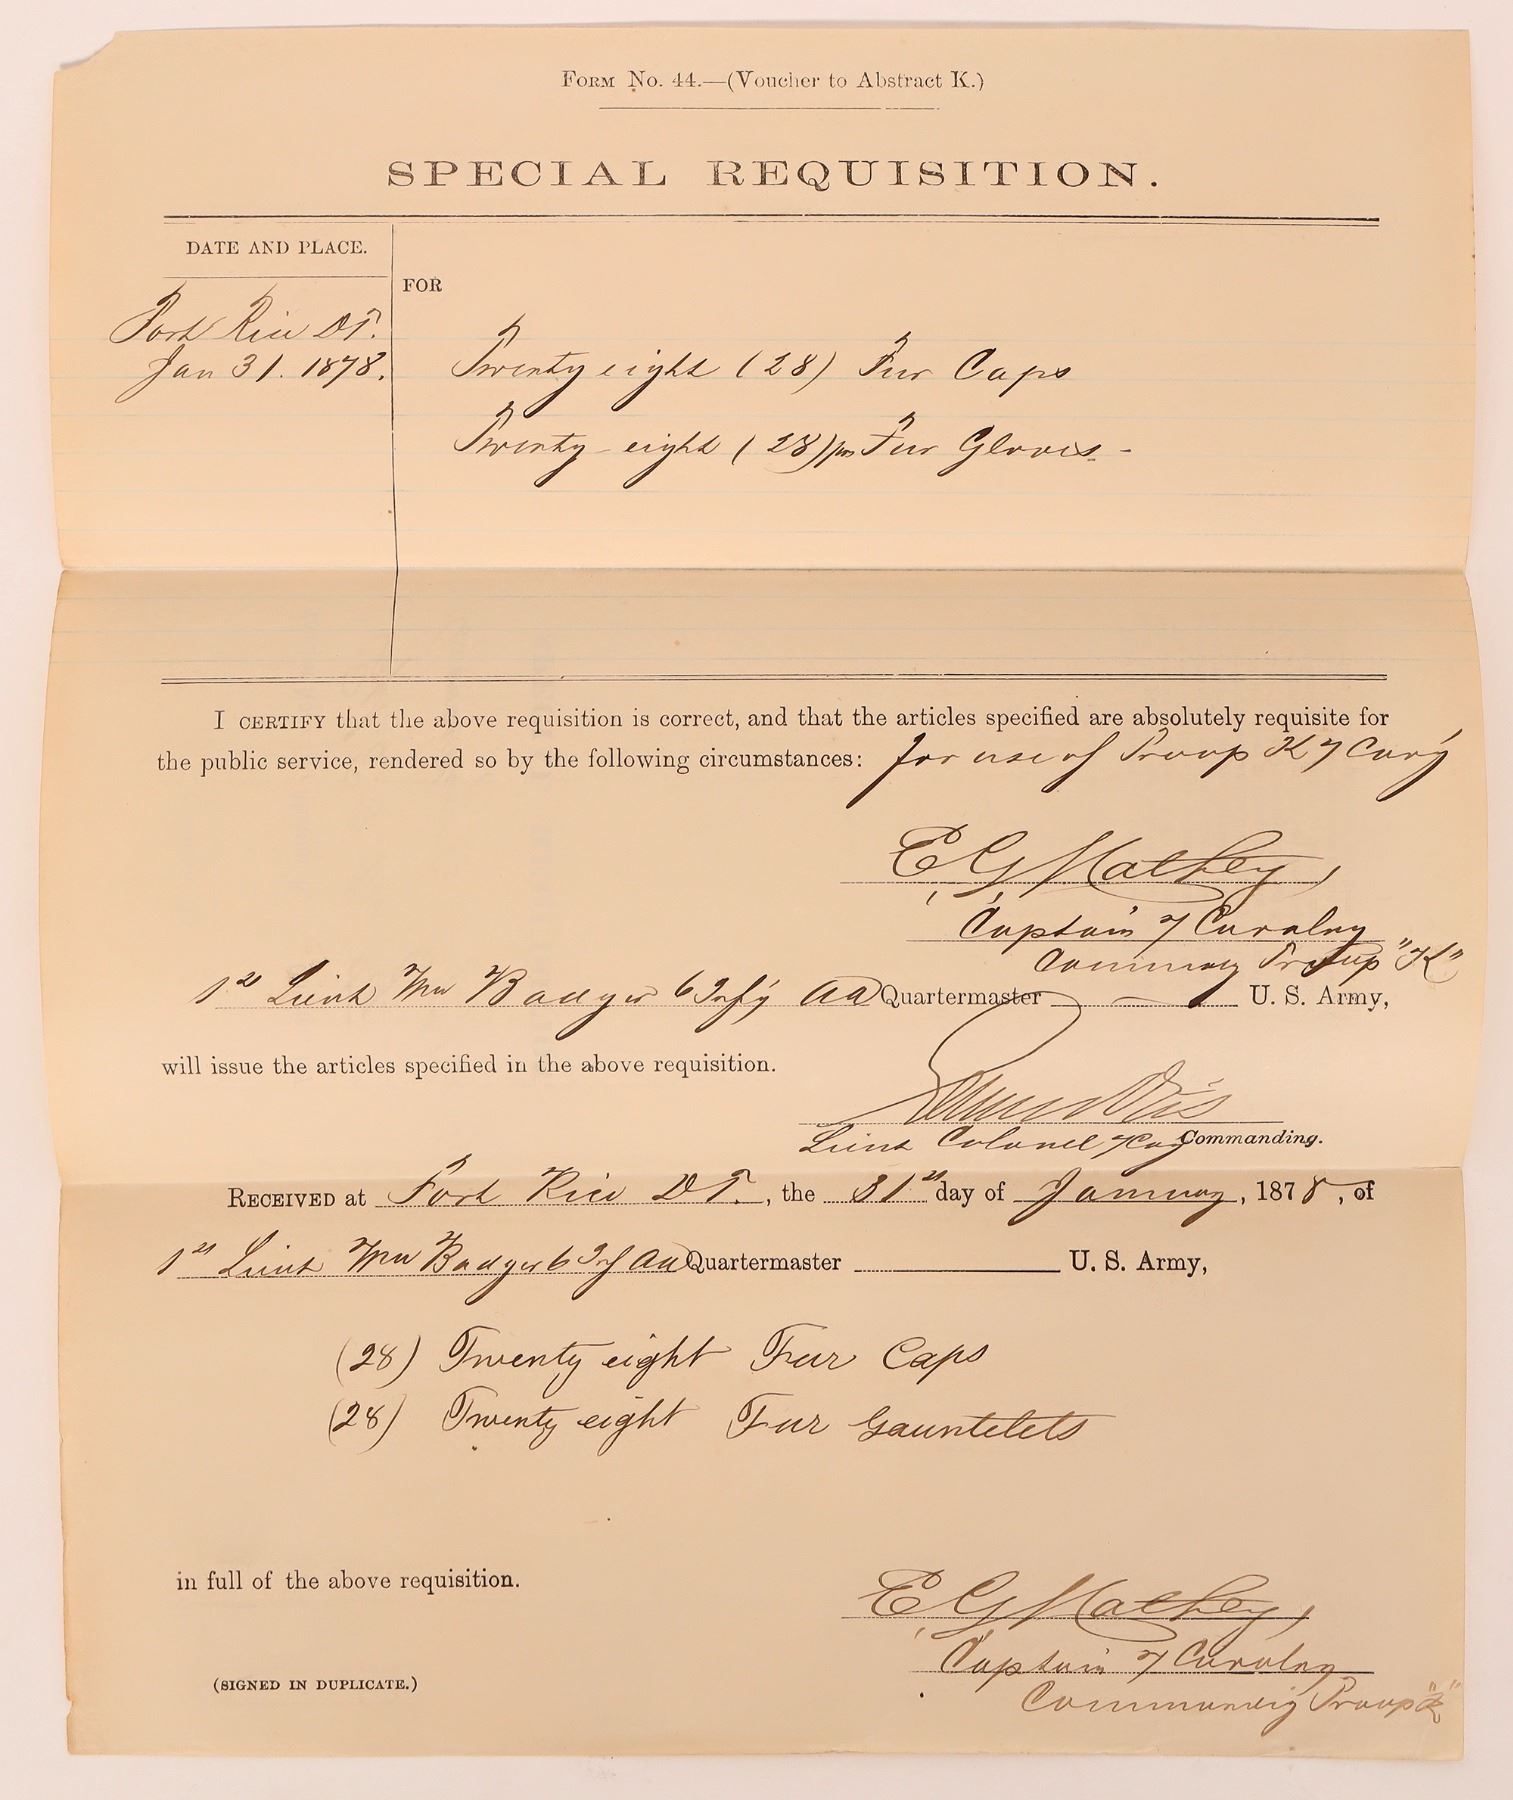 FORM No. 44.—(Voucher to Abstract K.)
SPECIAL REQUISITION.
DATE AND PLACE.
FOR
Fort Rice D.T.
Jan 31. 1878.
Twenty eight (28) Fur Caps
Twenty-eight (28) prs Fur Gloves. -
I CERTIFY that the above requisition is correct, and that the articles specified are absolutely requisite for
the public service, rendered so by the following circumstances: for use of Troop K 7 Cav'y
E. G. Mathey,
Captain 7 Cavalry
Troop "K"
1st Lieut Wm Badger 6 Inf'y AA Quartermaster — U. S. Army,
will issue the articles specified in the above requisition.
Lieut Colonel 7 Cav Commanding.
RECEIVED at Fort Rice D.T., the 31st day of January, 1878, of
1st Lieut Wm Badger 6 Inf AA Quartermaster U. S. Army,
(28) Twenty eight Fur Caps
(28) Twenty eight Fur Gauntelets
in full of the above requisition.
E. G. Mathey,
Captain 7 Cavalry
(SIGNED IN DUPLICATE.)
Commanding Troop "K"